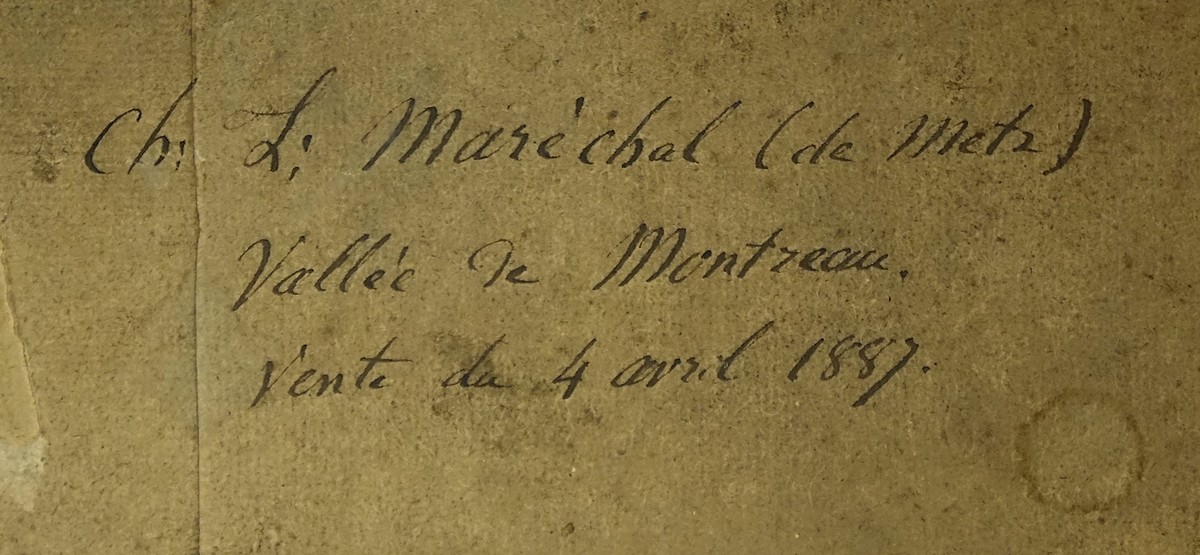 Ch: L: Maréchal (de Metz)
Vallée de Montreau.
Vente du 4 avril 1887.